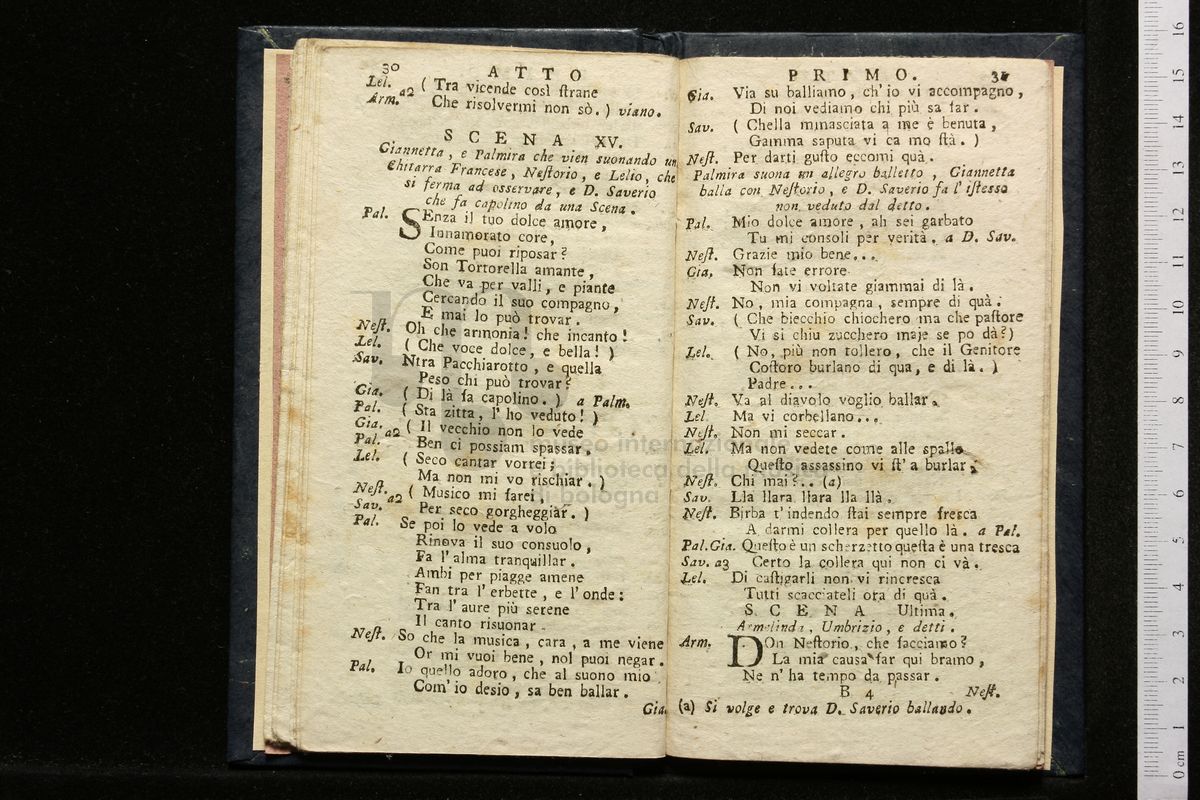 30
ATTO
Lel. a2 ( Tra vicende così ſtrane
Arm. Che risolvermi non sò. ) viano.
SCENA XV.
Giannetta, e Palmira che vien suonando un
Chitarra Francese, Neſtorio, e Lelio, che
si ferma ad osservare, e D. Saverio
che fa capolino da una Scena.
Pal. SEnza il tuo dolce amore,
Innamorato core,
Come puoi riposar?
Son Tortorella amante,
Che va per valli, e piante
Cercando il suo compagno,
E mai lo può trovar.
Neſt. Oh che armonia! che incanto!
Lel. ( Che voce dolce, e bella! )
Sav. Ntra Pacchiarotto, e quella
Peso chi può trovar?
Gia. ( Di là fa capolino. ) a Palm.
Pal. ( Sta zitta, l'ho veduto! )
Gia. a2 ( Il vecchio non lo vede
Pal. Ben ci possiam spassar.
Lel. ( Seco cantar vorrei;
Ma non mi vo rischiar. )
Neſt. a2 ( Musico mi farei,
Sav. Per seco gorgheggiar. )
Pal. Se poi lo vede a volo
Rinova il suo consuolo,
Fa l'alma tranquillar.
Ambi per piagge amene
Fan tra l'erbette, e l'onde:
Tra l'aure più serene
Il canto risuonar.
Neſt. So che la musica, cara, a me viene
Or mi vuoi bene, nol puoi negar.
Pal. Io quello adoro, che al suono mio
Com'io desio, sa ben ballar.
Gia.
PRIMO. 31
Gia. Via su balliamo, ch'io vi accompagno,
Di noi vediamo chi più sa far.
Sav. ( Chella mmasciata a me è benuta,
Gamma saputa vi ca mo ſtà. )
Neſt. Per darti guſto eccomi quà.
Palmira suona un allegro balletto, Giannetta
balla con Neſtorio, e D. Saverio fa l'iſtesso
non veduto dal detto.
Pal. Mio dolce amore, ah sei garbato
Tu mi consoli per verità. a D. Sav.
Neſt. Grazie mio bene...
Gia. Non fate errore
Non vi voltate giammai di là.
Neſt. No, mia compagna, sempre di quà.
Sav. ( Che biecchio chiochero ma che paſtore
Vi si chiu zucchero maje se po dà?)
Lel. ( No, più non tollero, che il Genitore
Coſtoro burlano di qua, e di là. )
Padre...
Neſt. Va al diavolo voglio ballar.
Lel. Ma vi corbellano...
Neſt. Non mi seccar.
Lel. Ma non vedete come alle spalle
Queſto assassino vi ſt'a burlar.
Neſt. Chi mai?.. (a)
Sav. Lla llara llara lla llà.
Neſt. Birba t'indendo ſtai sempre fresca
A darmi collera per quello là. a Pal.
Pal.Gia. Queſto è un scherzetto queſta è una tresca
Sav. a3 Certo la collera qui non ci và.
Lel. Di caſtigarli non vi rincresca
Tutti scacciateli ora di quà.
SCENA Ultima.
Armelinda, Umbrizio, e detti.
Arm. DOn Neſtorio, che facciamo?
La mia causa far qui bramo,
Ne n'ha tempo da passar.
B 4 Neſt.
(a) Si volge e trova D. Saverio ballando.
museo internazionale
biblioteca della musica
di bologna
0 cm 1 2 3 4 5 6 7 8 9 10 11 12 13 14 15 16